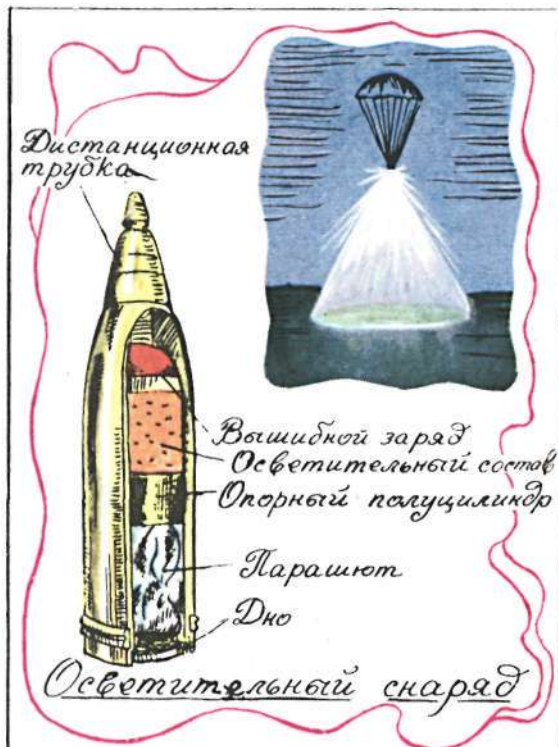 Дистанционная
трубка
Вышибной заряд
Осветительный состав
Опорный полуцилиндр
Парашют
Дно
Осветительный снаряд